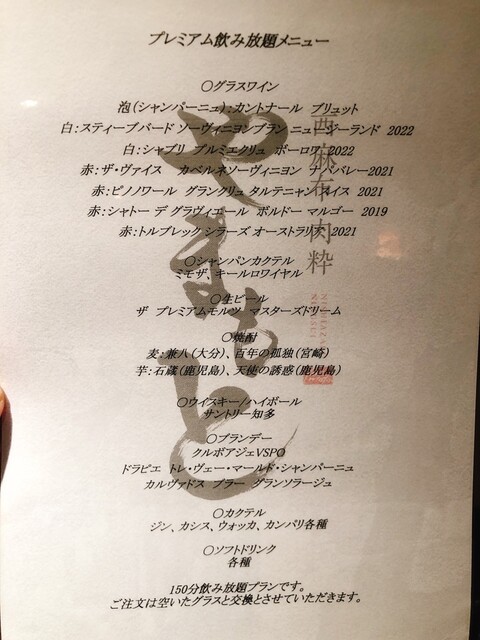 プレミアム飲み放題メニュー
〇グラスワイン
泡(シャンパーニュ):カントナール ブリュット
白:スティーブバード ソーヴィニヨンブラン ニュージーランド 2022
白:シャブリ プルミエクリュ ボーロワ 2022
赤:ザ・ヴァイス カベルネソーヴィニヨン ナパバレー2021
赤:ピノノワール グランクリュ タルテニャン スイス 2021
赤:シャトー デ グラヴィエール ボルドー マルゴー 2019
赤:トルブレック シラーズ オーストラリア 2021
〇シャンパンカクテル
ミモザ、キールロワイヤル
〇生ビール
ザ プレミアムモルツ マスターズドリーム
〇焼酎
麦:兼八(大分)、百年の孤独(宮崎)
芋:石蔵(鹿児島)、天使の誘惑(鹿児島)
〇ウイスキー/ハイボール
サントリー知多
〇ブランデー
クルボアジェVSPO
ドラピエ トレ・ヴェー・マールド・シャンパーニュ
カルヴァドス ブラー グランソラージュ
〇カクテル
ジン、カシス、ウォッカ、カンパリ各種
〇ソフトドリンク
各種
150分飲み放題プランです。
ご注文は空いたグラスと交換とさせていただきます。
西麻布 肉粋
やまもと